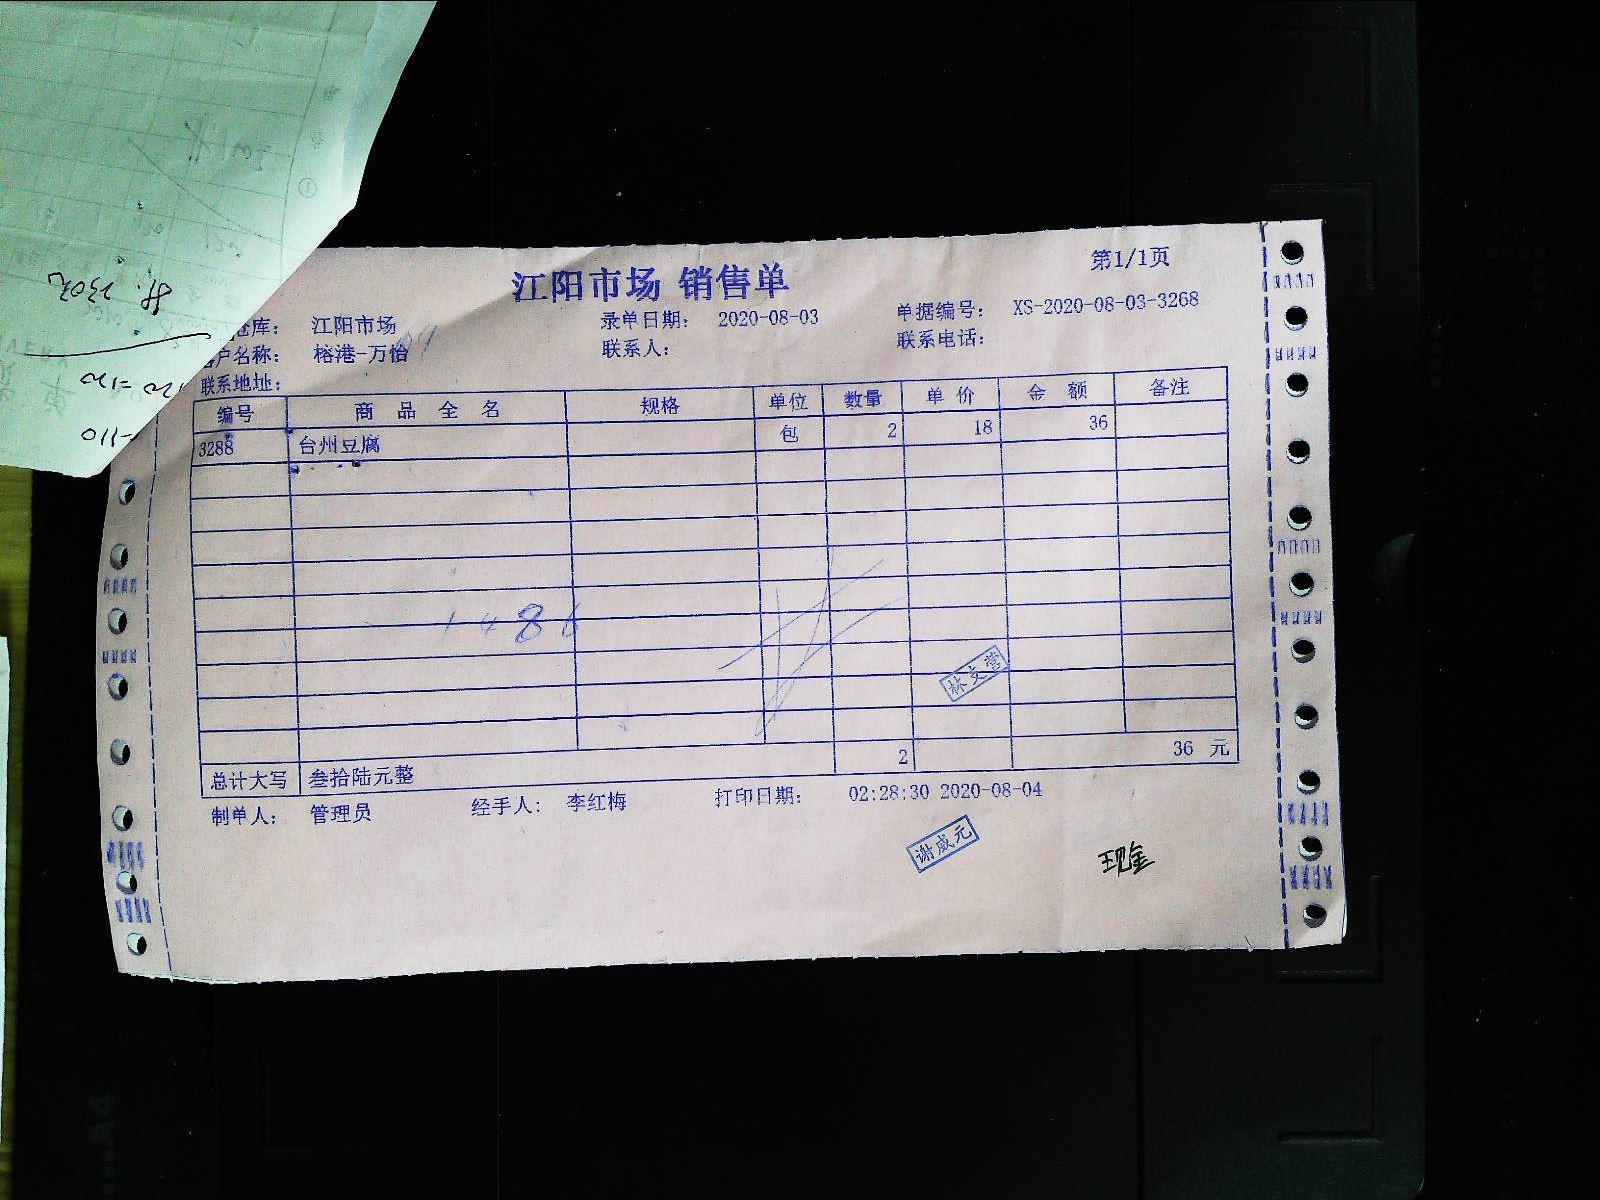 江阳市场 销售单
第1/1页
仓库： 江阳市场 录单日期： 2020-08-03 单据编号： XS-2020-08-03-3268
客户名称： 榕港-万怡 联系人： 联系电话：
联系地址：
编号 商品全名 规格 单位 数量 单价 金额 备注
3288 台州豆腐 包 2 18 36
1486
林文营
2 36 元
总计大写 叁拾陆元整
制单人： 管理员 经手人： 李红梅 打印日期： 02:28:30 2020-08-04
谢威元
现金